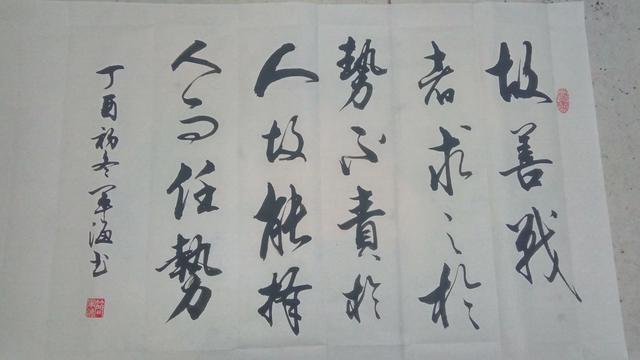 故善戰
者求之於
勢不責於
人故能擇
人而任勢
丁酉初冬军海书